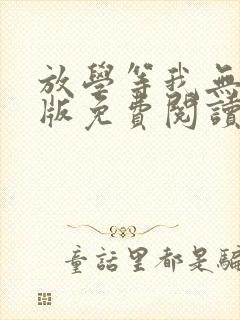 放學等我無
版免費閱讀
童話里都是騙